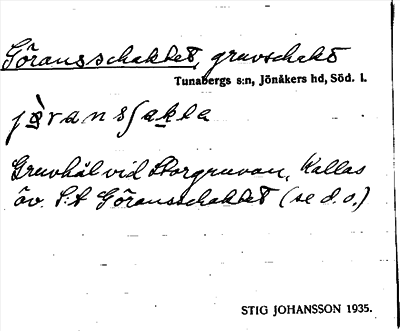 Göransschaktet, gruvschakt
Tunabergs s:n, Jönåkers hd, Söd. l.
Gruvhål vid Storgruvan. Kallas
äv. S:t Göransschaktet (se d. o.)
STIG JOHANSSON 1935.